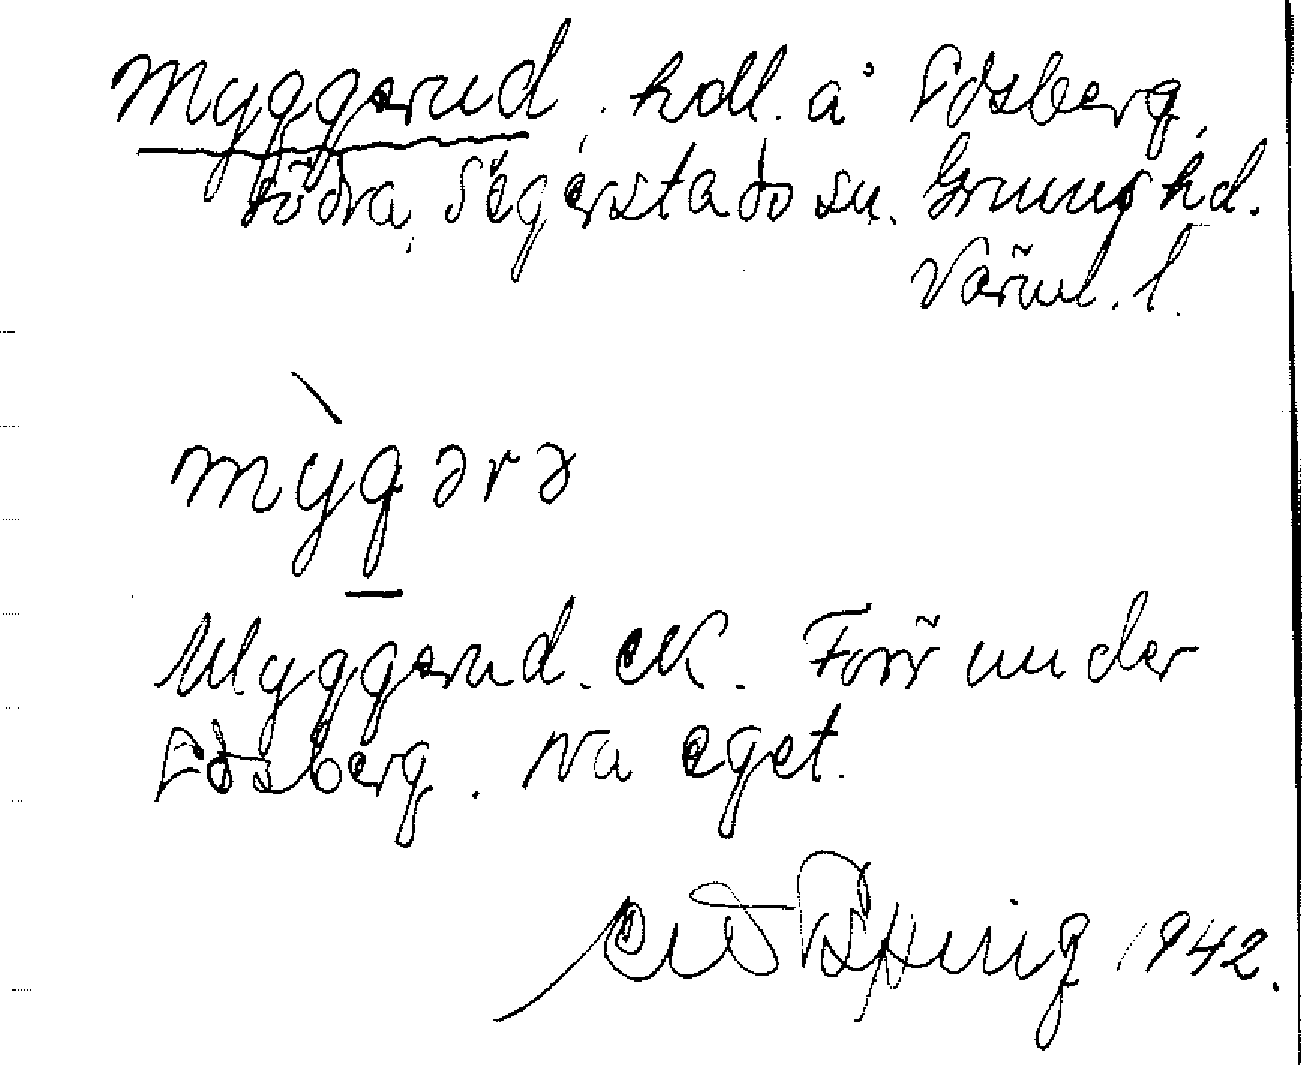 Myggerud, hdl. å Edsberg,
Södra Segerstads sn. Grums hd.
Värml. l.
mỳgərə
Myggerud. EK. Förr under
Edsberg. Na eget.
1942.